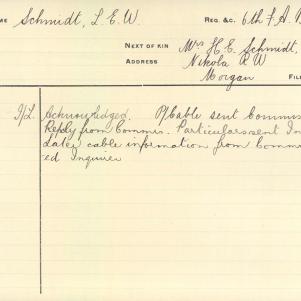 ME Schmidt, L. E. W. REG. &C. 6th F. A. B
NEXT OF KIN Mrs H. E. Schmidt,
ADDRESS Nikola R W
Morgan FILE
I/L. Acknowledged. P/Cable sent Commis
Reply from Commis. Particulars sent In
Later cable information from Commi
ed Inquirer